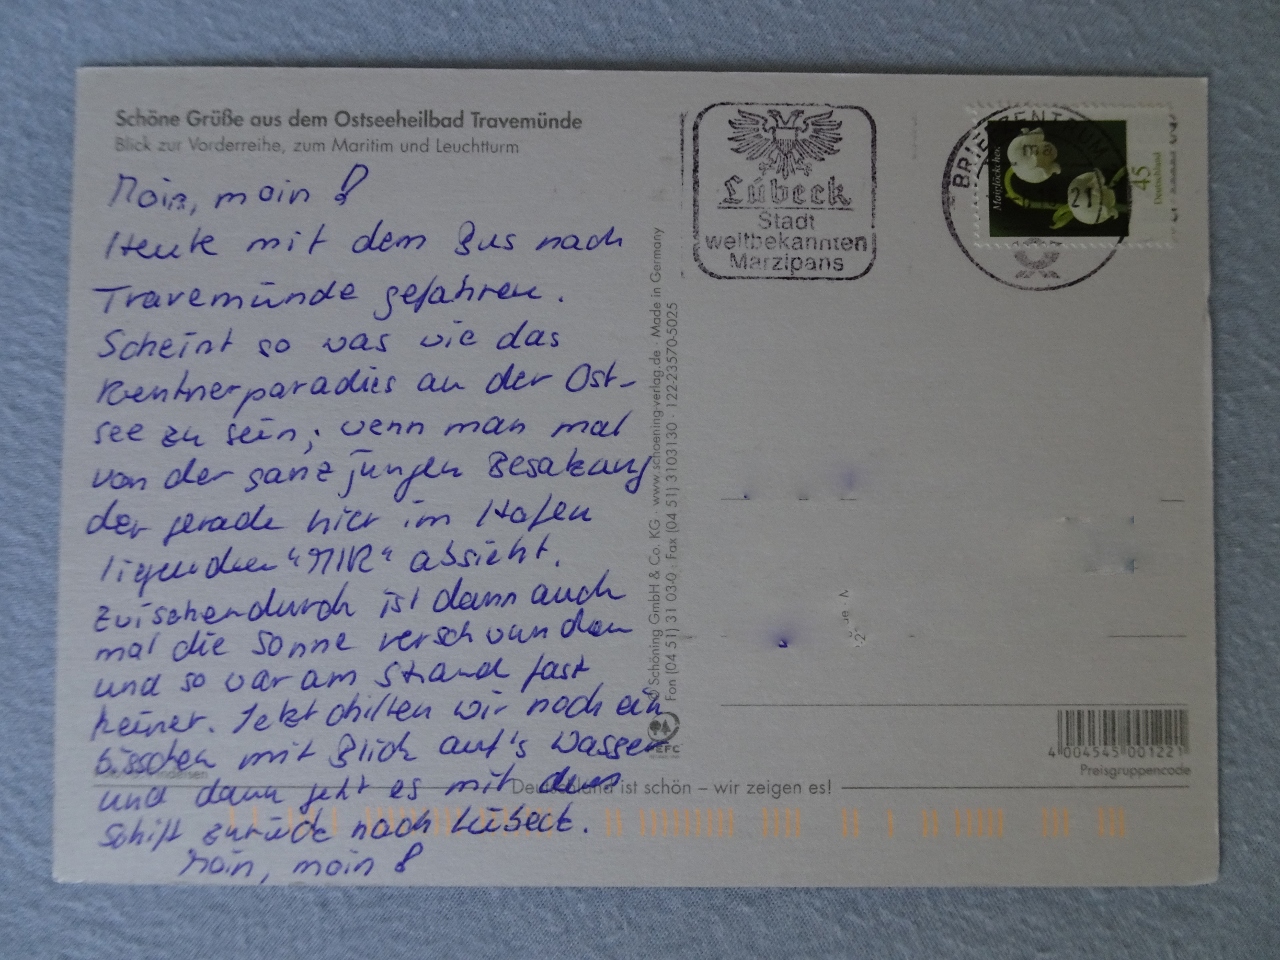 Schöne Grüße aus dem Ostseeheilbad Travemünde
Blick zur Vorderreihe, zum Maritim und Leuchtturm
Moin, moin!
Heute mit dem Bus nach
Travemünde gefahren.
Scheint so was wie das
Rentnerparadies an der Ost-
see zu sein, wenn man mal
von der ganz jungen Besatzung
der gerade hier im Hafen
ligenden "MIR" absieht.
Zwischendurch ist dann auch
mal die Sonne verschwunden
und so war am Strand fast
keiner. Jetzt chillen wir noch ein
bisschen mit Blick auf's Wasser
und dann geht es mit dem
Schiff zurück nach Lübeck.
Moin, moin!
Lübeck
Stadt
weltbekannten
Marzipans
BRIEFZENTRUM
21
Maiglöckchen
45
Deutschland
© Schöning GmbH & Co. KG · www.schoening-verlag.de · Made in Germany
Fon (04 51) 31 03-0 · Fax (04 51) 3103130 · 122-23570-5025
PEFC
4 004545 001221
Preisgruppencode
Deutschland ist schön – wir zeigen es!